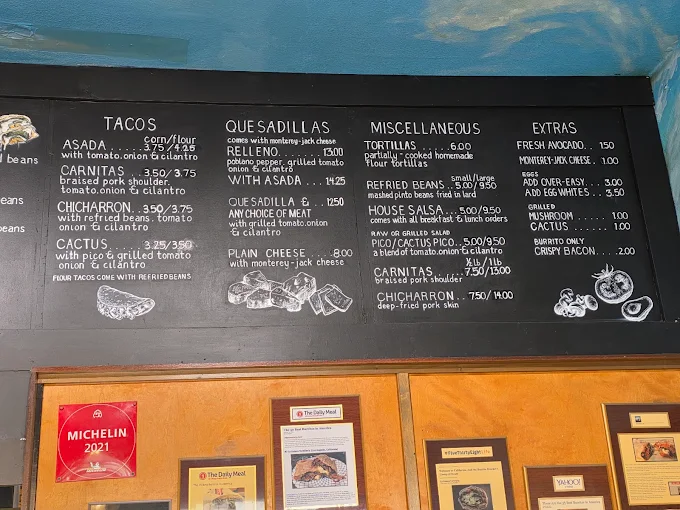 beans
beans
beans
TACOS
corn/flour
ASADA ..... 3.75/4.25
with tomato, onion & cilantro
CARNITAS ... 3.50/3.75
braised pork shoulder,
tomato, onion & cilantro
CHICHARRON .. 3.50/3.75
with refried beans, tomato
onion & cilantro
CACTUS ..... 3.25/3.50
with pico & grilled tomato
onion & cilantro
FLOUR TACOS COME WITH REFRIED BEANS
QUESADILLAS
comes with monterey-jack cheese
RELLENO ...... 13.00
poblano pepper, grilled tomato
onion & cilantro
WITH ASADA ... 14.25
QUESADILLA & .. 12.50
ANY CHOICE OF MEAT
with grilled tomato, onion
& cilantro
PLAIN CHEESE ..... 8.00
with monterey-jack cheese
MISCELLANEOUS
TORTILLAS ...... 6.00
partially-cooked homemade
flour tortillas
small/large
REFRIED BEANS .. 5.00/9.50
mashed pinto beans fried in lard
HOUSE SALSA .. 5.00/9.50
comes with all breakfast & lunch orders
RAW OR GRILLED SALAD
PICO/CACTUS PICO .. 5.00/9.50
a blend of tomato, onion & cilantro
½ lb/1 lb
CARNITAS ...... 7.50/13.00
braised pork shoulder
CHICHARRON .. 7.50/14.00
deep-fried pork skin
EXTRAS
FRESH AVOCADO .. 1.50
MONTEREY-JACK CHEESE . 1.00
EGGS
ADD OVER-EASY ... 3.00
ADD EGG WHITES .. 3.50
GRILLED
MUSHROOM ..... 1.00
CACTUS ....... 1.00
BURRITO ONLY
CRISPY BACON ... 2.00
MICHELIN
2021
The Daily Meal
The Daily Meal
#FiveThirtyEight
YAHOO!